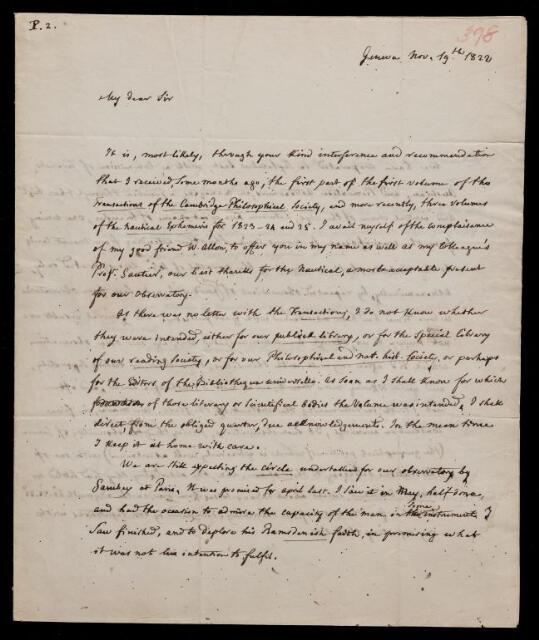 P. 2.
398
Geneva Nov. 19th 1822
My dear Sir
It is, most likely, through your kind interference and recommendation
that I received, some months ago, the first part of the first volume of the
Transactions of the Cambridge Philosophical Society, and more recently, three volumes
of the nautical Ephemeris for 1823-24 and 25. I avail myself of the complaisance
of my good friend W. Allen, to offer you in my name as well as my Colleague's
Prof. Gautier, our best thanks for the Nautical, a most acceptable present
for our Observatory.
As there was no letter with the Transactions, I do not know whether
they were intended, either for our publick library, or for the special library
of our reading Society, or for our Philosophical and nat. hist. Society, or perhaps
for the Editors of the Bibliotheque universelle. As soon as I shall know for which
of those literary or Scientifical bodies the Volume was intended, I shall
direct, from the obliged quarter, due acknowledgements. In the mean time
I keep it at home with care.
We are still expecting the circle undertaken for our observatory by
Gambey at Paris, It was promised for april last. I saw it in May, half done,
and had the occasion to admire the capacity of the man in some instruments I
saw finished, and to deplore his Ramsdenish faith, in promising what
it was not his intention to fulfil.